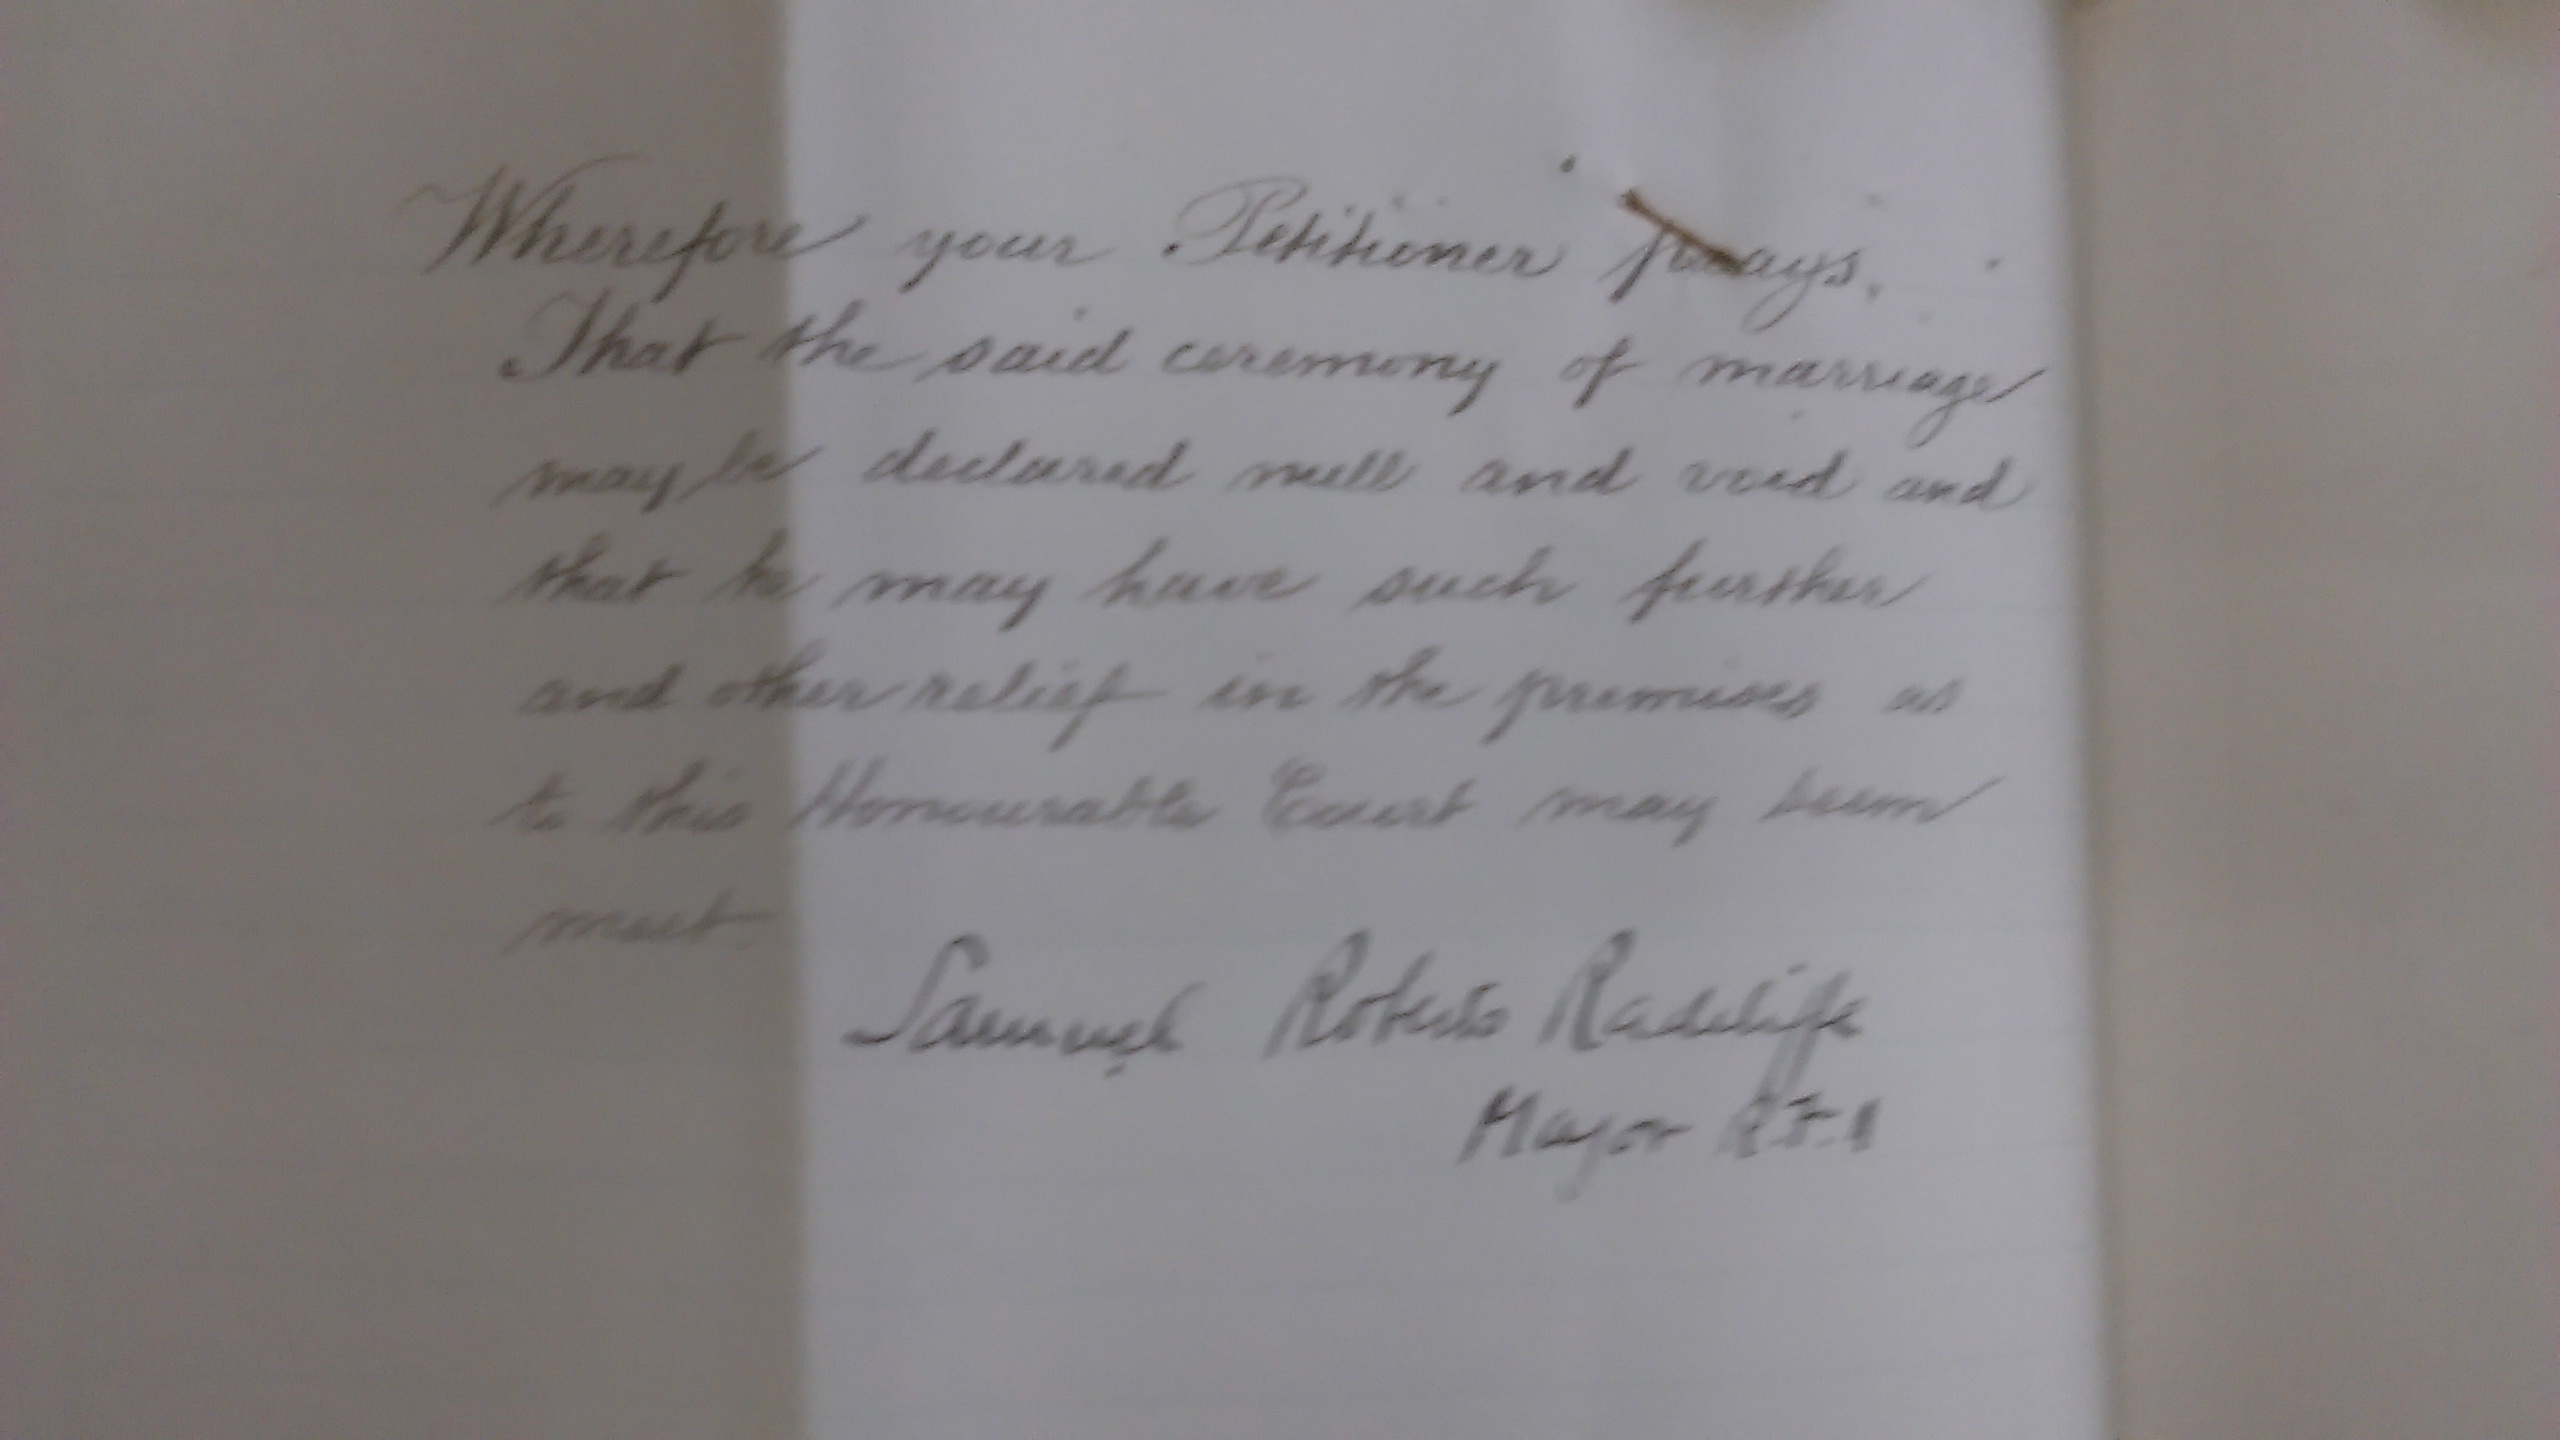 Wherefore your Petitioner prays.
That the said ceremony of marriage
may be declared null and void and
that he may have such further
and other relief in the premises as
to this Honourable Court may seem
meet
Samuel Roberts Radcliffe
Major